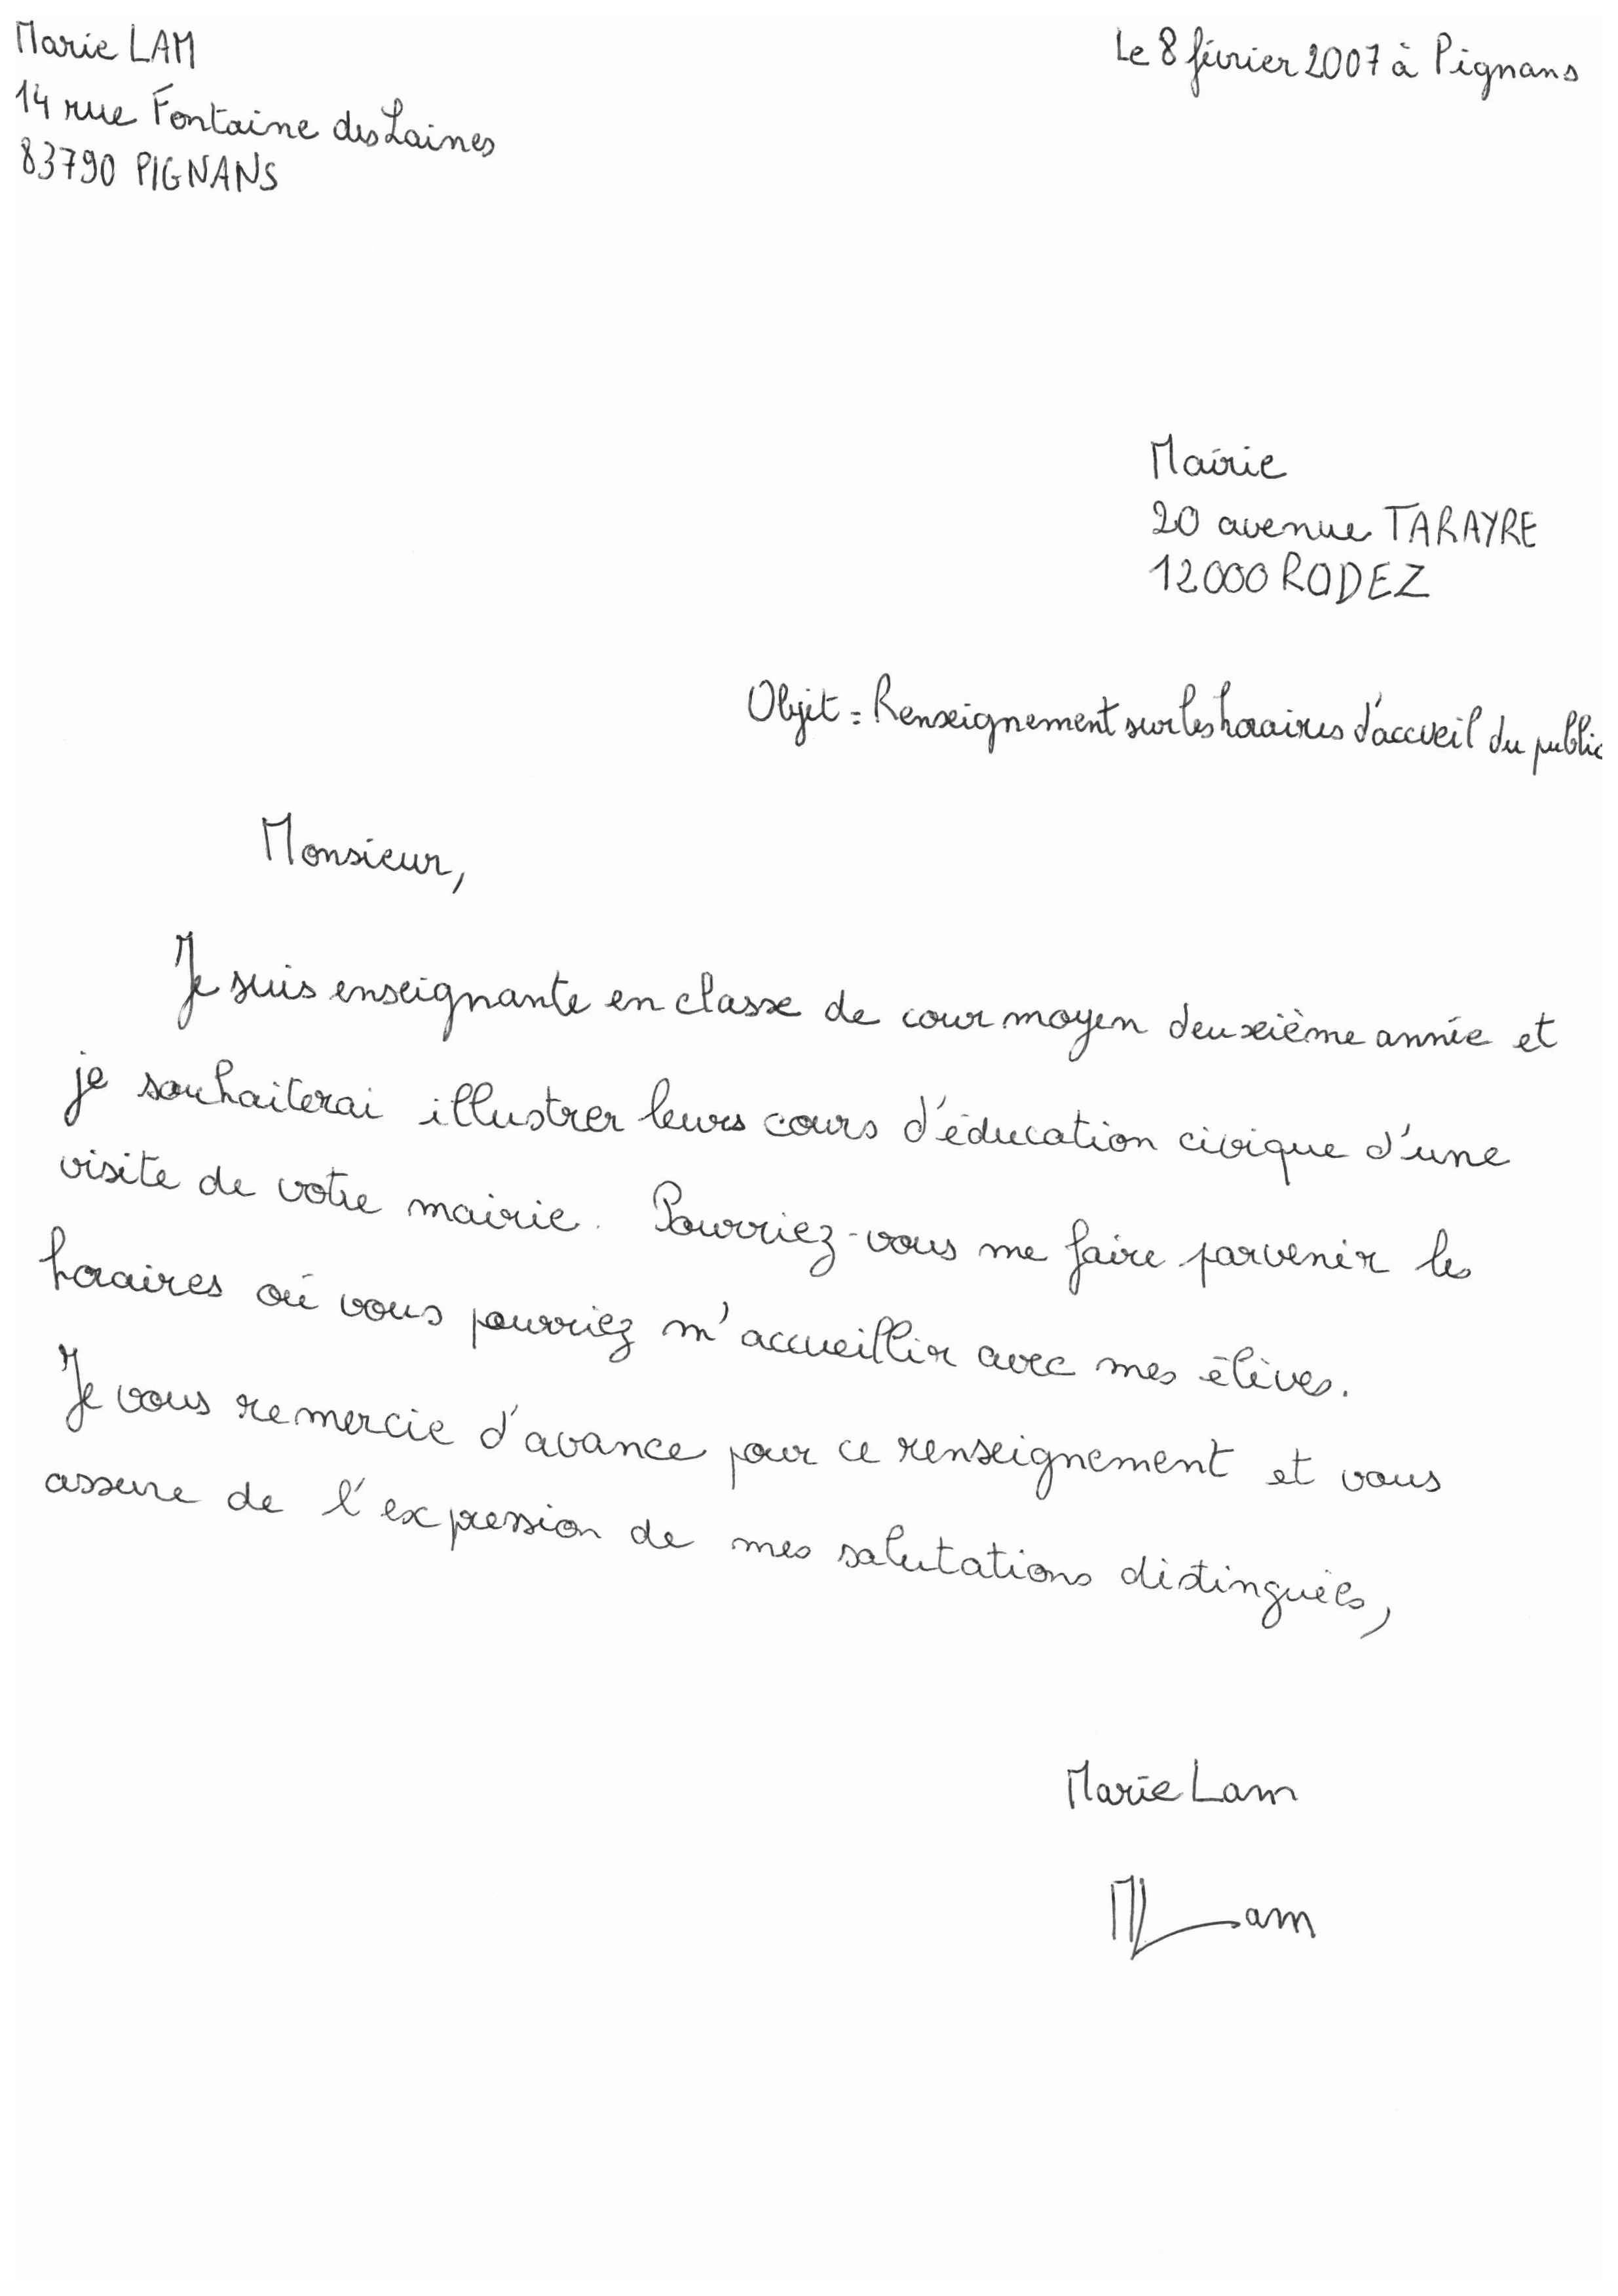 Marie LAM
14 rue Fontaine des Laines
83790 PIGNANS
Le 8 février 2007 à Pignans
Mairie
20 avenue TARAYRE
12000 RODEZ
Objet : Renseignement sur les horaires d'accueil du public
Monsieur,
Je suis enseignante en classe de cour moyen deuxième année et
je souhaiterai illustrer leurs cours d'éducation civique d'une
visite de votre mairie. Pourriez-vous me faire parvenir les
horaires où vous pourriez m'accueillir avec mes élèves.
Je vous remercie d'avance pour ce renseignement et vous
assure de l'expression de mes salutations distinguées,
Marie Lam
MLam